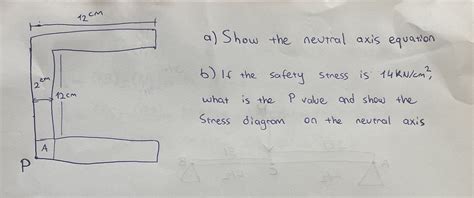 12 cm
a) Show the neutral axis equation
2 cm
12cm
b) If the safety stress is 14KN/cm²,
what is the P value and show the
Stress diagram on the neutral axis
A
P